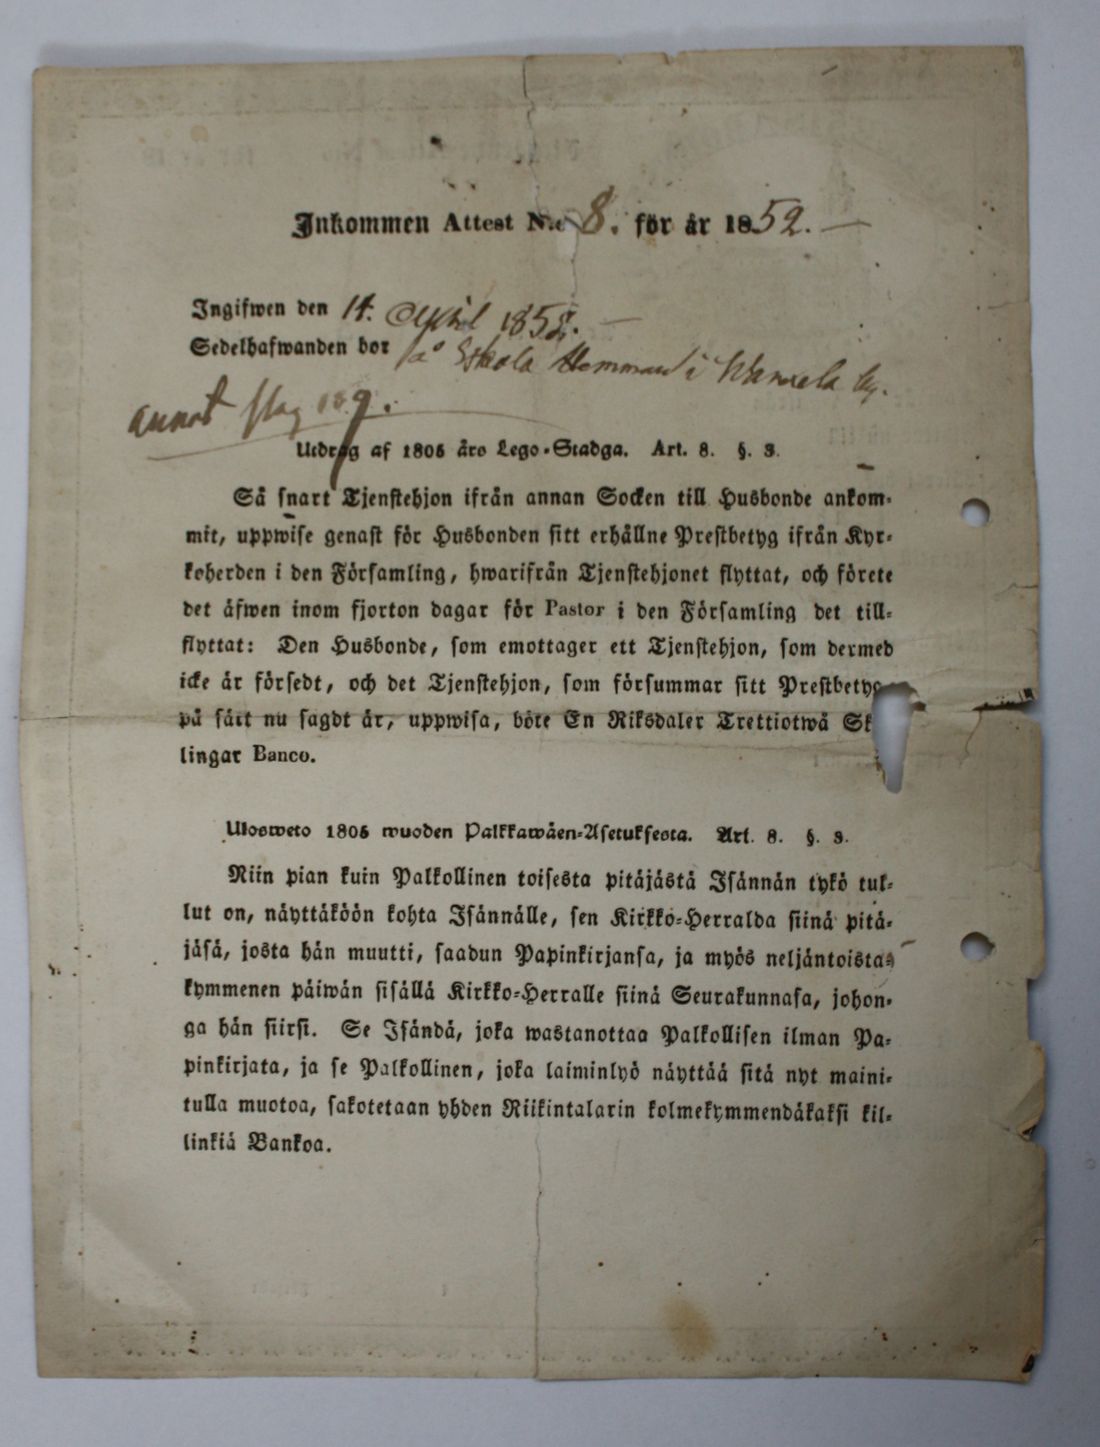 Inkommen Attest N:o 8. för år 1852.
Ingifwen den 14. April 1852.
Sedelhafwanden bor på Eskola Hemman i by.
annot pag 189.
Utdrag af 1805 års Lego-Stadga. Art. 8. §. 3.
Så snart Tjenstehjon ifrån annan Socken till Husbonde ankom-
mit, uppwise genast för Husbonden sitt erhållne Prestbetyg ifrån Kyr-
koherden i den Församling, hwarifrån Tjenstehjonet flyttat, och förete
det äfwen inom fjorton dagar för Pastor i den Församling det till-
flyttat: Den Husbonde, som emottager ett Tjenstehjon, som dermed
icke är försedt, och det Tjenstehjon, som försummar sitt Prestbetyg
på sätt nu sagdt är, uppwisa, böte En Riksdaler Trettiotwå Sk
lingar Banco.
Ulosweto 1805 wuoden Palkkawäen-Asetuksesta. Art. 8. §. 3.
Niin pian kuin Palkollinen toisesta pitäjästä Isännän tykö tul-
lut on, näyttäköön kohta Isännälle, sen Kirkko-Herralda siinä pitä-
jäsä, josta hän muutti, saadun Papinkirjansa, ja myös neljäntoista-
kymmenen päiwän sisällä Kirkko-Herralle siinä Seurakunnasa, johon-
ga hän siirsi. Se Isändä, joka wastanottaa Palkollisen ilman Pa-
pinkirjata, ja se Palkollinen, joka laiminlyö näyttää sitä nyt maini-
tulla muotoa, sakotetaan yhden Riikintalarin kolmekymmendäkaksi kil-
linkiä Bankoa.